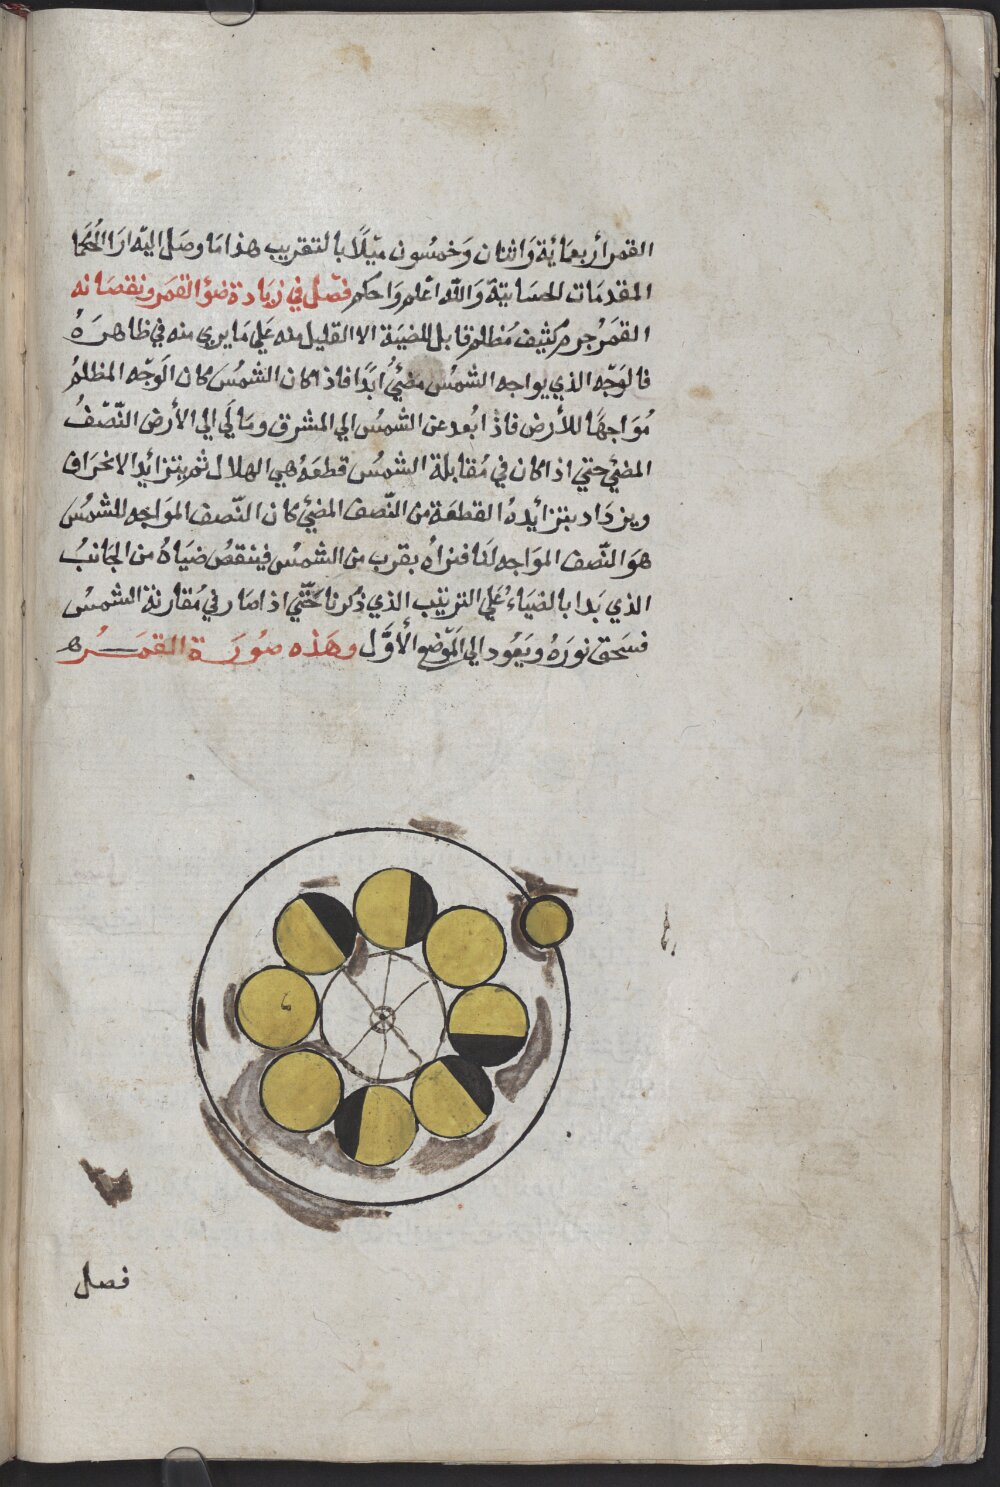 القمر أربعمائة واثنان وخمسون ميلاً بالتقريب هذا ما وصل اليه اراالحكما
المقدمات الحسابية والله اعلم واحكم فصل في زيادة ضؤ القمر ونقصانه
القمر جرم كثيف مظلم قابل للضية الا القليل منه علي ما يري منه في ظاهره
فالوجه الذي يواجه الشمس مضئ ابدًا فاذا كان الشمس كان الوجه المظلم
مواجهًا للأرض فاذا بعد عن الشمس الي المشرق ومالَي الي الأرض النصف
المضئ حتي اذا كان في مقابلة الشمس قطعة هي الهلال ثم يتزائد الانحراف
ويزداد بتزائيده القطعة من النصف المضئ كان النصف المواجه للشمس
هو النصف المواجه لنا فنراه بقرب من الشمس فينقص ضياه من الجانب
الذي بدا بالضياء علي الترتيب الذي ذكرنا حتي اذا صار في مقارنة الشمس
فسحق نوره ويعود الي الموضع الأول وهذه صورة القمر ه
فصل